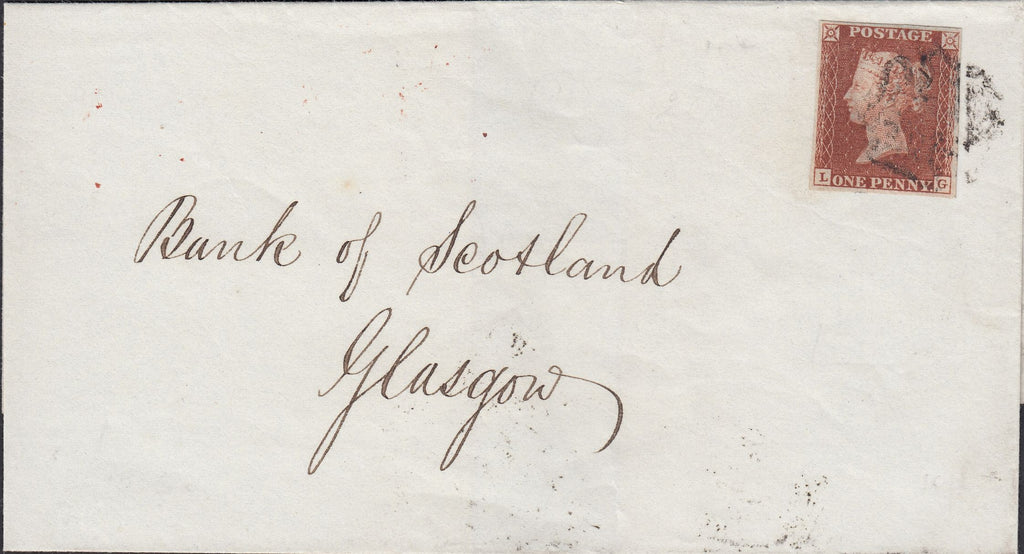 POSTAGE
L G
ONE PENNY
Bank of Scotland
Glasgow